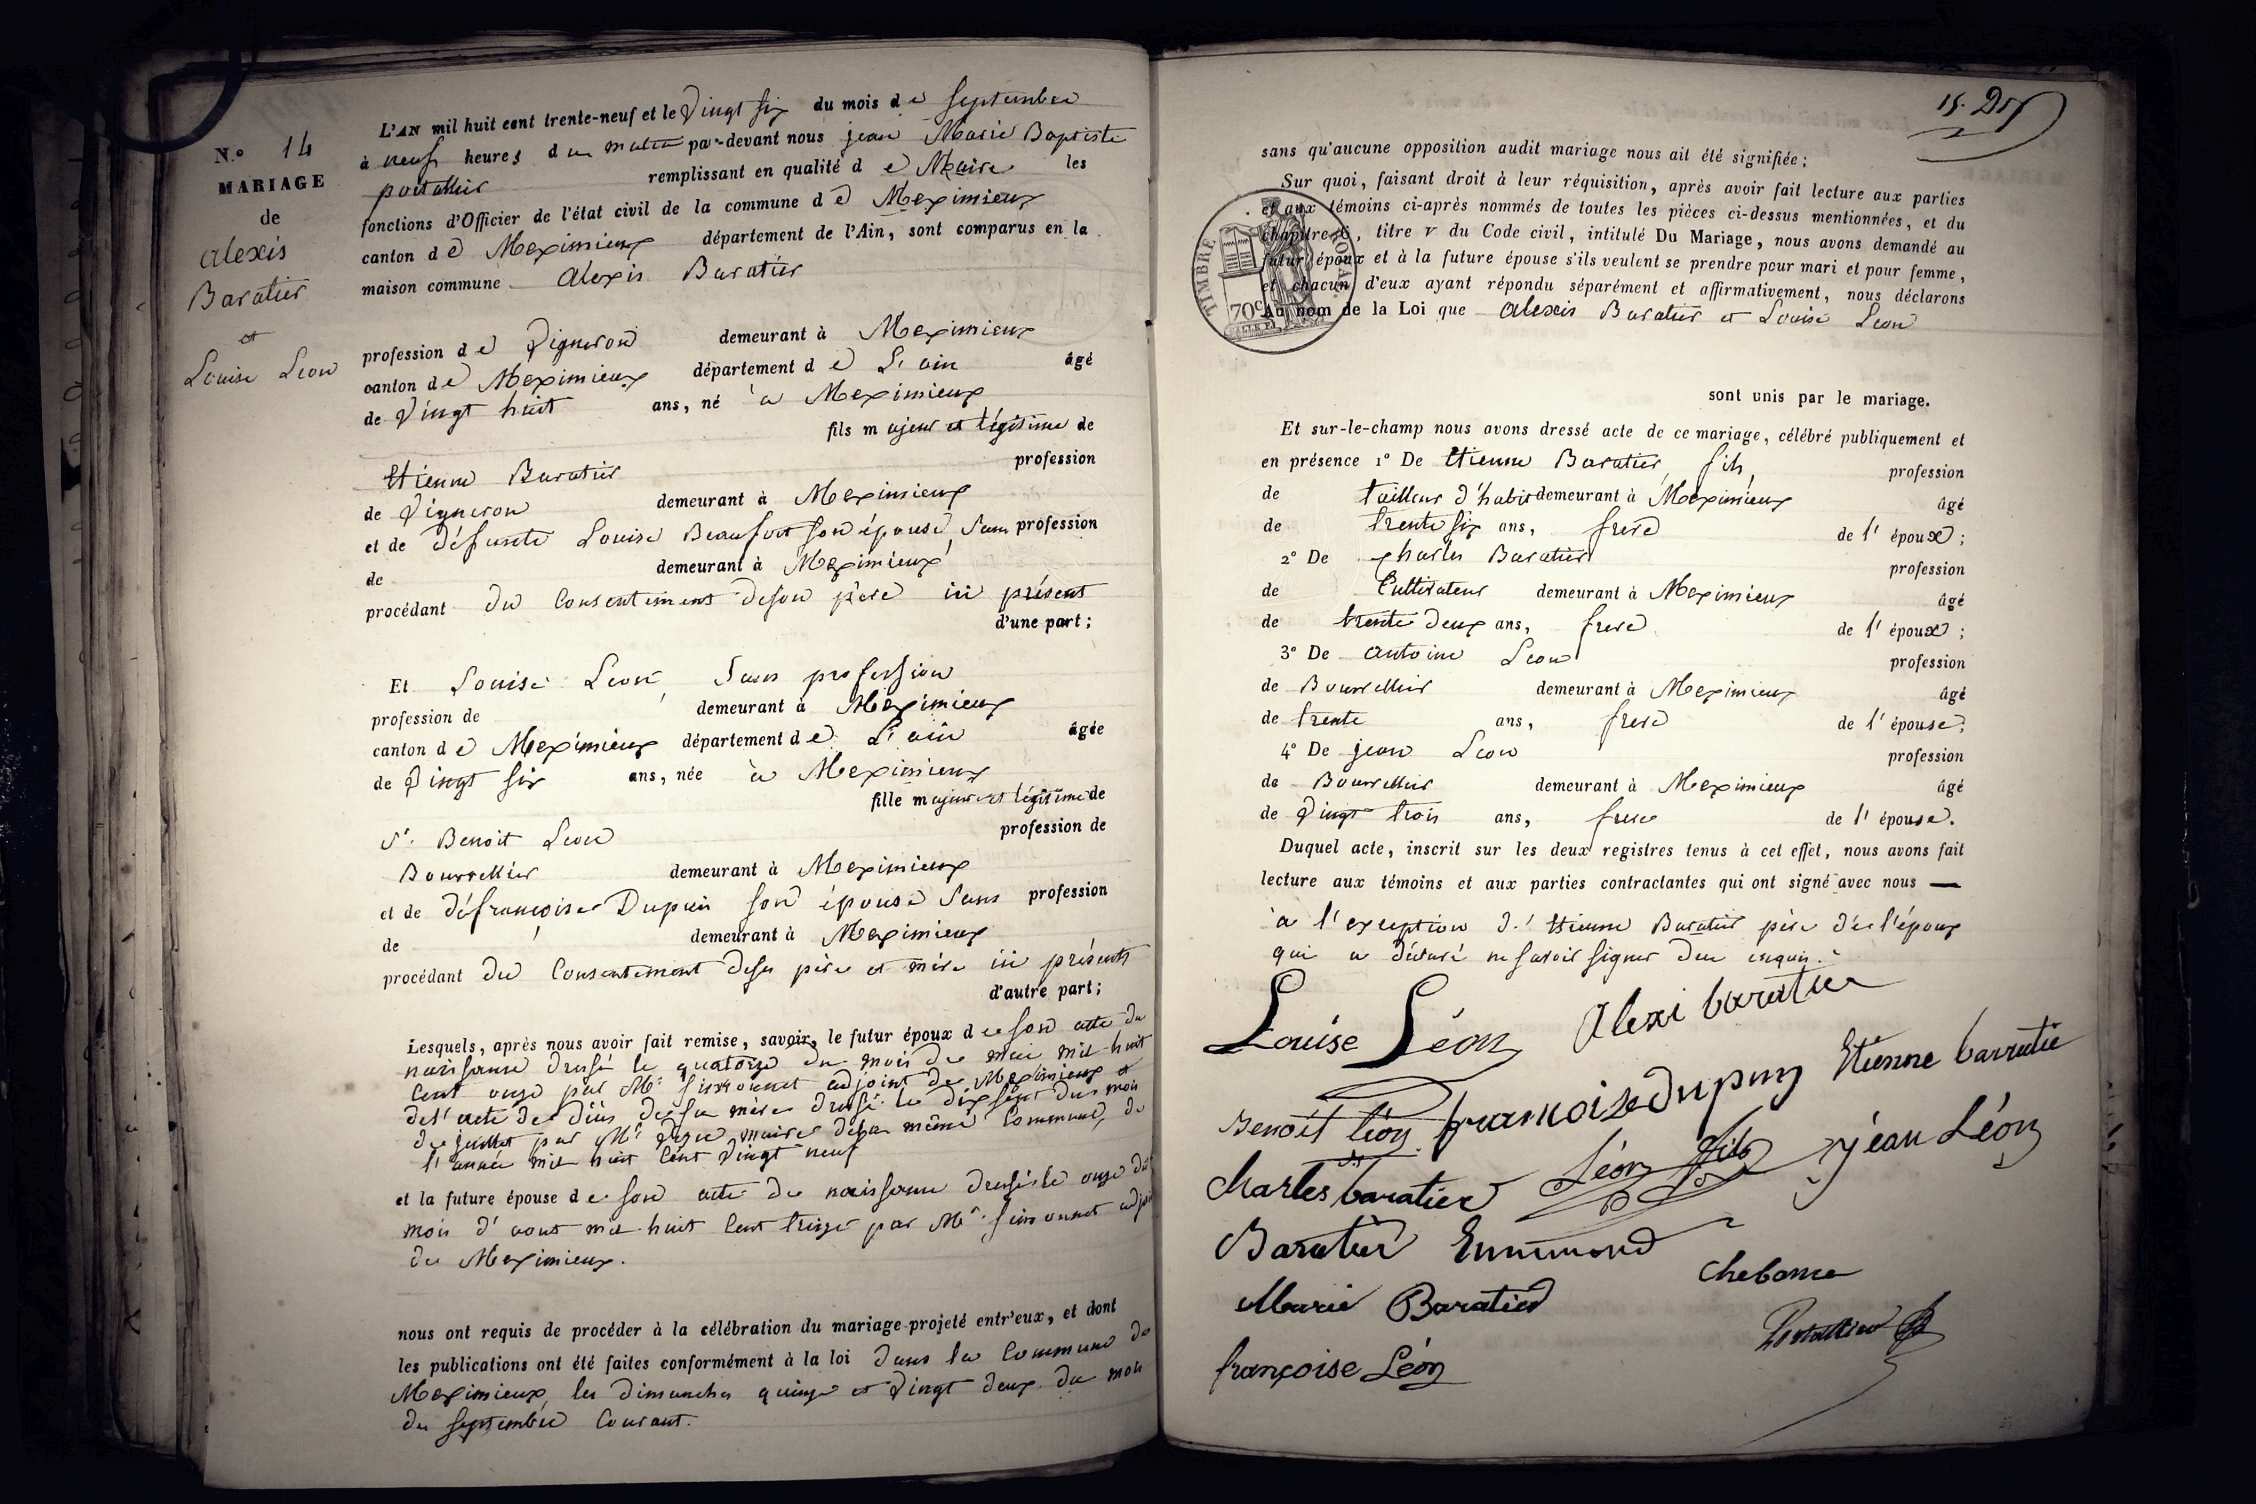 N.o 14
MARIAGE
de
alexis
Baratier
et
Louise Leon
L'AN mil huit cent trente-neuf et le vingt six du mois de septembre
à neuf heures du matin par-devant nous jean Marie Baptiste
portallier remplissant en qualité de Maire les
fonctions d'Officier de l'état civil de la commune de Meximieux
canton de Meximieux département de l'Ain, sont comparus en la
maison commune alexis Baratier
profession de vigneron demeurant à Meximieux
canton de Meximieux département de L'ain âgé
de vingt huit ans, né à Meximieux
fils majeur et légitime de
Etienne Baratier profession
de vigneron demeurant à Meximieux
et de défunte Louise Beaufort son épouse, sans profession
de demeurant à Meximieux
procédant du Consentement de son père ici présent
d'une part;
Et Louise Leon, sans profession
profession de demeurant à Meximieux
canton de Meximieux département de L'ain âgée
de vingt six ans, née à Meximieux
fille majeure et légitime de
Sr. Benoit Leon profession de
Bourrellier demeurant à Meximieux
et de défrançoise Dupuis son épouse sans profession
de demeurant à Meximieux
procédant du Consentement de ses père et mère ici présents
d'autre part;
Lesquels, après nous avoir fait remise, savoir, le futur époux de son acte de
naissance dressé le quatorze du mois de mai mil huit
Cent onze par Mr. simonnet adjoint de Meximieux et
de l'acte de décès de sa mère dressé le dix sept du mois
de juillet par Mr. maire de la même Commune, de
l'année mil huit Cent vingt neuf
et la future épouse de son acte de naissance dressé le onze du
mois d'aout mil huit Cent treize par Mr. simonnet adjoint
de Meximieux.
nous ont requis de procéder à la célébration du mariage projeté entr'eux, et dont
les publications ont été faites conformément à la loi dans la Commune de
Meximieux, les dimanches quinze et vingt deux du mois
de septembre Courant.
15.
sans qu'aucune opposition audit mariage nous ait été signifiée;
Sur quoi, faisant droit à leur réquisition, après avoir fait lecture aux parties
et aux témoins ci-après nommés de toutes les pièces ci-dessus mentionnées, et du
chapitre 6, titre v du Code civil, intitulé Du Mariage, nous avons demandé au
futur époux et à la future épouse s'ils veulent se prendre pour mari et pour femme,
et chacun d'eux ayant répondu séparément et affirmativement, nous déclarons
Au nom de la Loi que alexis Baratier et Louise Leon
TIMBRE ROYAL
70c
sont unis par le mariage.
Et sur-le-champ nous avons dressé acte de ce mariage, célébré publiquement et
en présence 1o De Etienne Baratier, fils, profession
de tailleur d'habit demeurant à Meximieux âgé
de trente six ans, frere de l'époux;
2o De Charles Baratier profession
de Cultivateur demeurant à Meximieux âgé
de trente deux ans, frere de l'époux;
3o De antoine Leon profession
de Bourrellier demeurant à Meximieux âgé
de trente ans, frere de l'épouse;
4o De jean Leon profession
de Bourrellier demeurant à Meximieux âgé
de vingt trois ans, frere de l'épouse.
Duquel acte, inscrit sur les deux registres tenus à cet effet, nous avons fait
lecture aux témoins et aux parties contractantes qui ont signé avec nous —
à l'exception d'Etienne Baratier père de l'époux
qui a déclaré ne savoir signer de ce enquis.
Louise Léon alexi baratier
Benoît léon francoise dupuy Etienne barratie
Charles baratier Léon fils jean Léon
Baratier Emmmond
chebance
Marie Baratier
Portallier
françoise Léon